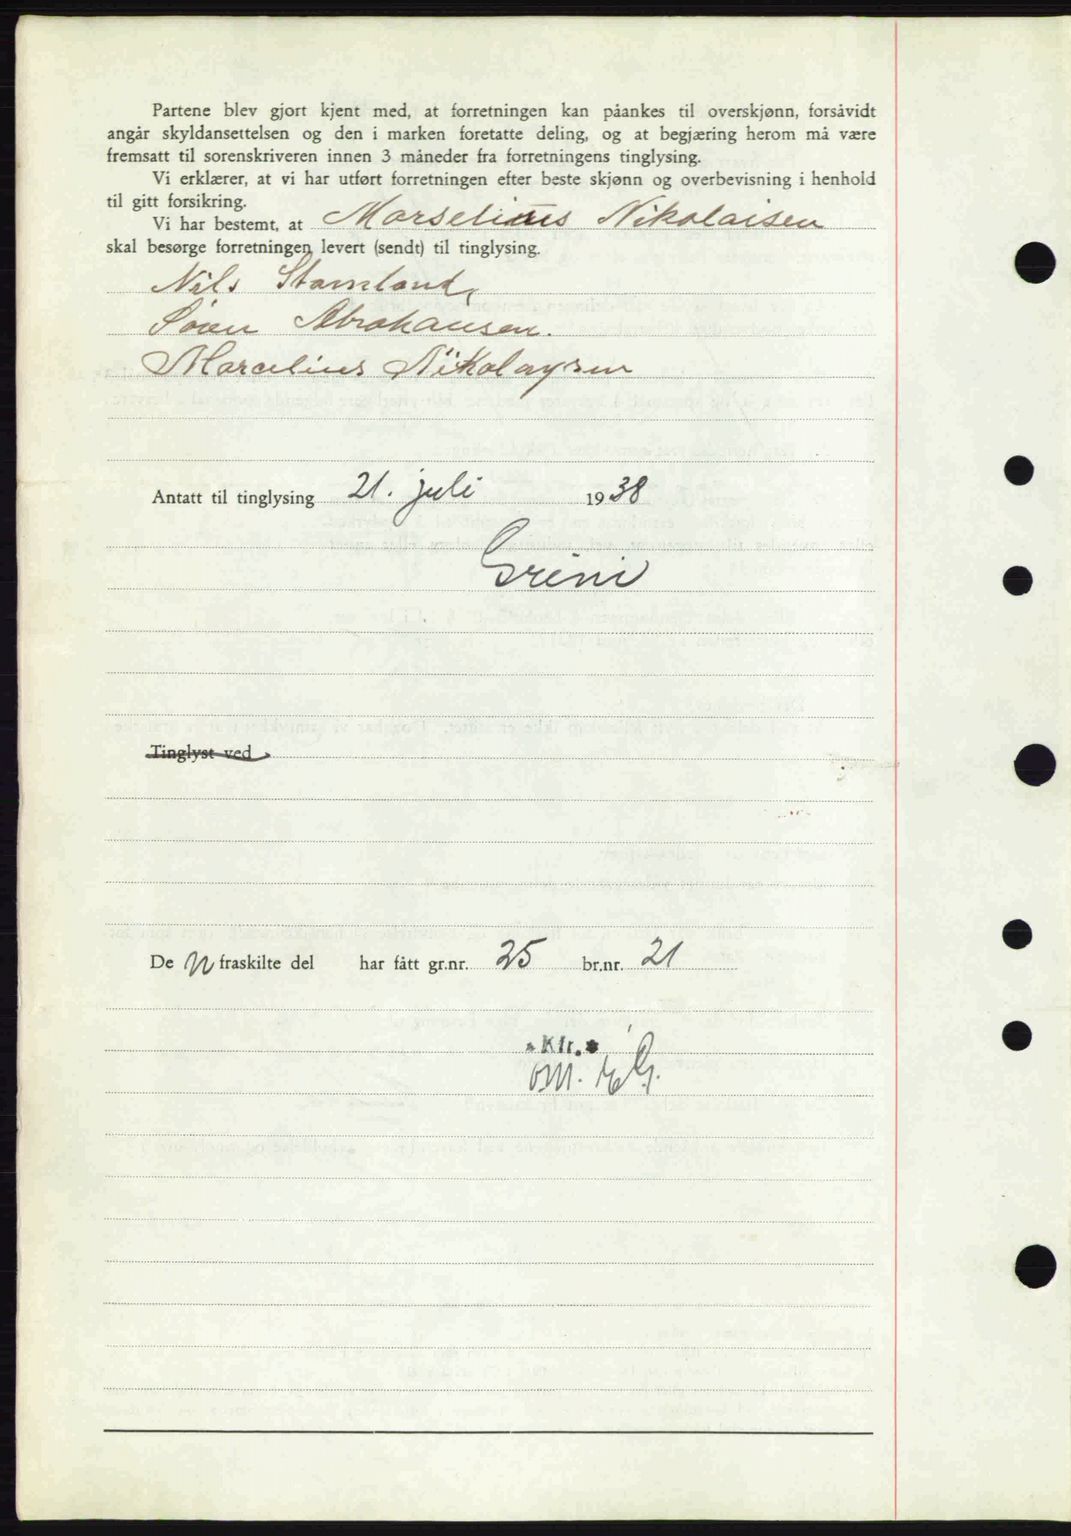 Partene blev gjort kjent med, at forretningen kan påankes til overskjønn, forsåvidt
angår skyldansettelsen og den i marken foretatte deling, og at begjæring herom må være
fremsatt til sorenskriveren innen 3 måneder fra forretningens tinglysing.
Vi erklærer, at vi har utført forretningen efter beste skjønn og overbevisning i henhold
til gitt forsikring.
Vi har bestemt, at Marselius Nikolaisen
skal besørge forretningen levert (sendt) til tinglysing.
Nils Stamland,
Søren Abrahamsen.
Marcelius Nikolaysen
Antatt til tinglysing 21. juli 1938
Greni
Tinglyst ved
De n fraskilte del har fått gr.nr. 25 br.nr. 21
Kfr.